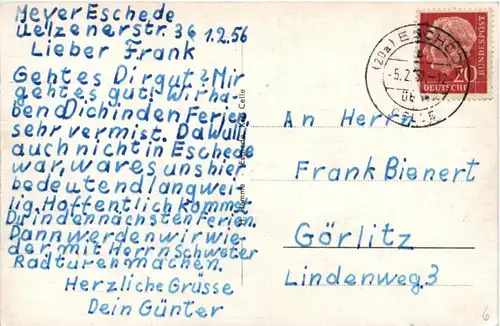 Meyer Eschede
Uelzenerstr. 36 1.2.56
Lieber Frank
Gehtes Dir gut? Mir
gehtes gut. Wir ha-
ben Dich in den Ferien
sehr vermist. Da Wulli
auch nicht in Eschede
war, war es uns hier
bedeutend langwei-
lig. Hoffentlich kommst
Du in den nächsten Ferien.
Dann werden wir wie-
der mit Herrn Schweter
Radturen machen.
Herzliche Grüsse
Dein Günter
An Herrn
Frank Bienert
Görlitz
Lindenweg. 3
(20a) ESCHEDE
-5.2.
CELLE
20
DEUTSCHE
BUNDESPOST
Celle
6